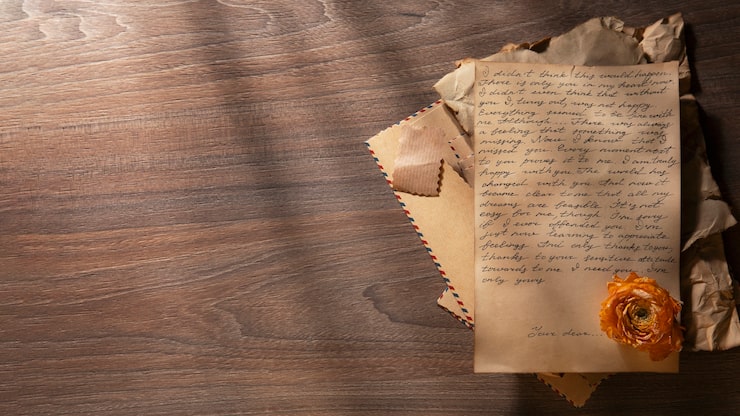 I didn't think this would happen.
There is only you in my heart now.
I didn't even think that without
you I, turns out, was not happy.
Everything seemed to be fine with
me. Although.... There was always
a feeling that something was
missing. Now I know that I
missed you. Every moment next
to you proves it to me. I am truly
happy with you. The world has
changed with you. And now it
became clear to me that all my
dreams are feasible. It's not
easy for me, though. I'm sorry
if I ever offended you. I'm
just now learning to appreciate
feelings. And only thanks to you,
thanks to your sensitive attitude
towards to me. I need you. I'm
only yours
Your dear....